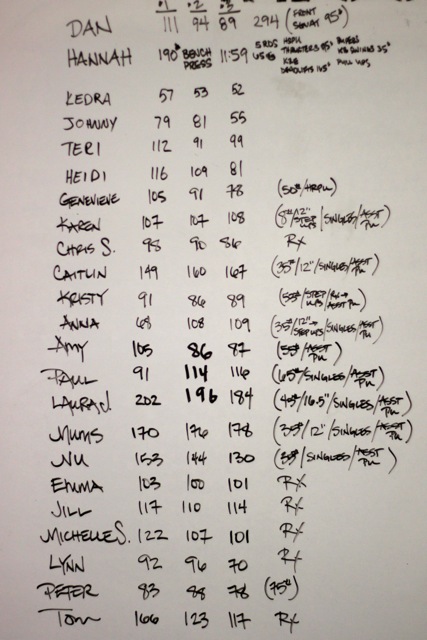 .1 .2 .3
DAN 111 94 89 294 (FRONT SQUAT 95#)
HANNAH 190# BENCH PRESS 11:59 5 RDS
KEDRA 57 53 52
JOHNNY 79 81 55
TERI 112 91 99
HEIDI 116 109 81
GENEVIEVE 105 91 78 (50#/HRPU)
KAREN 107 107 108 (8#/12" STEP UPS/SINGLES/ASST PU)
CHRIS S. 98 90 86 RX
CAITLIN 149 160 167 (35#/12"/SINGLES/ASST PU)
KRISTY 91 86 89 (55#/STEP UPS/RX→ ASST PU)
ANNA 68 108 109 (35#/12"→ STEP UPS/SINGLES/ASST PU)
AMY 105 86 87 (55#/ASST PU)
PAUL 91 114 116 (65#/SINGLES/ASST PU)
LAURA J. 202 196 184 (45#/16.5"/SINGLES/ASST PU)
MUMS 170 176 178 (35#/12"/SINGLES/ASST PU)
NU 153 144 130 (35#/SINGLES/ASST PU)
EMMA 103 100 101 RX
JILL 117 110 114 RX
MICHELLE S. 122 107 101 RX
LYNN 92 96 70 RX
PETER 83 88 78 (75#)
TOM 166 123 117 RX